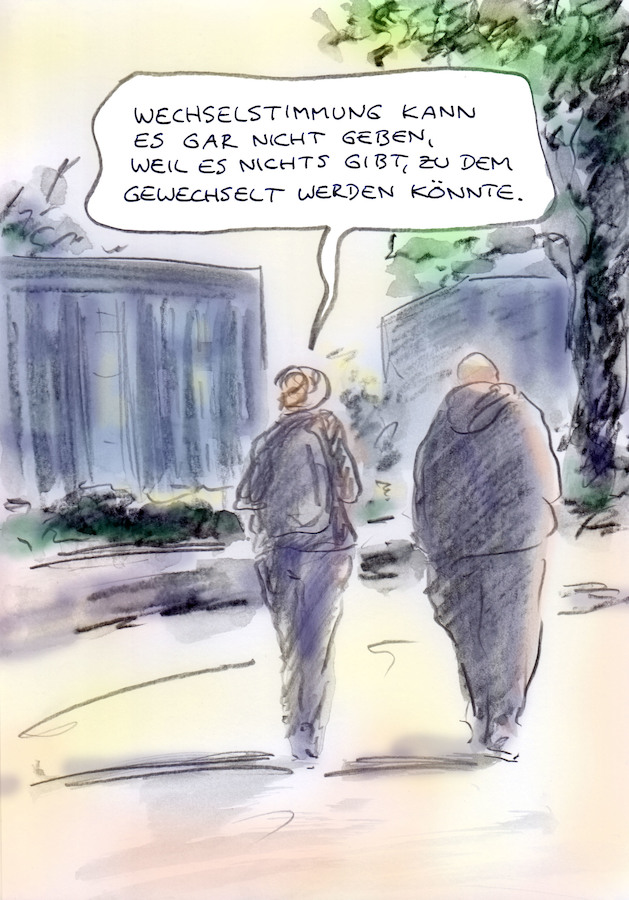 WECHSELSTIMMUNG KANN
ES GAR NICHT GEBEN,
WEIL ES NICHTS GIBT, ZU DEM
GEWECHSELT WERDEN KÖNNTE.